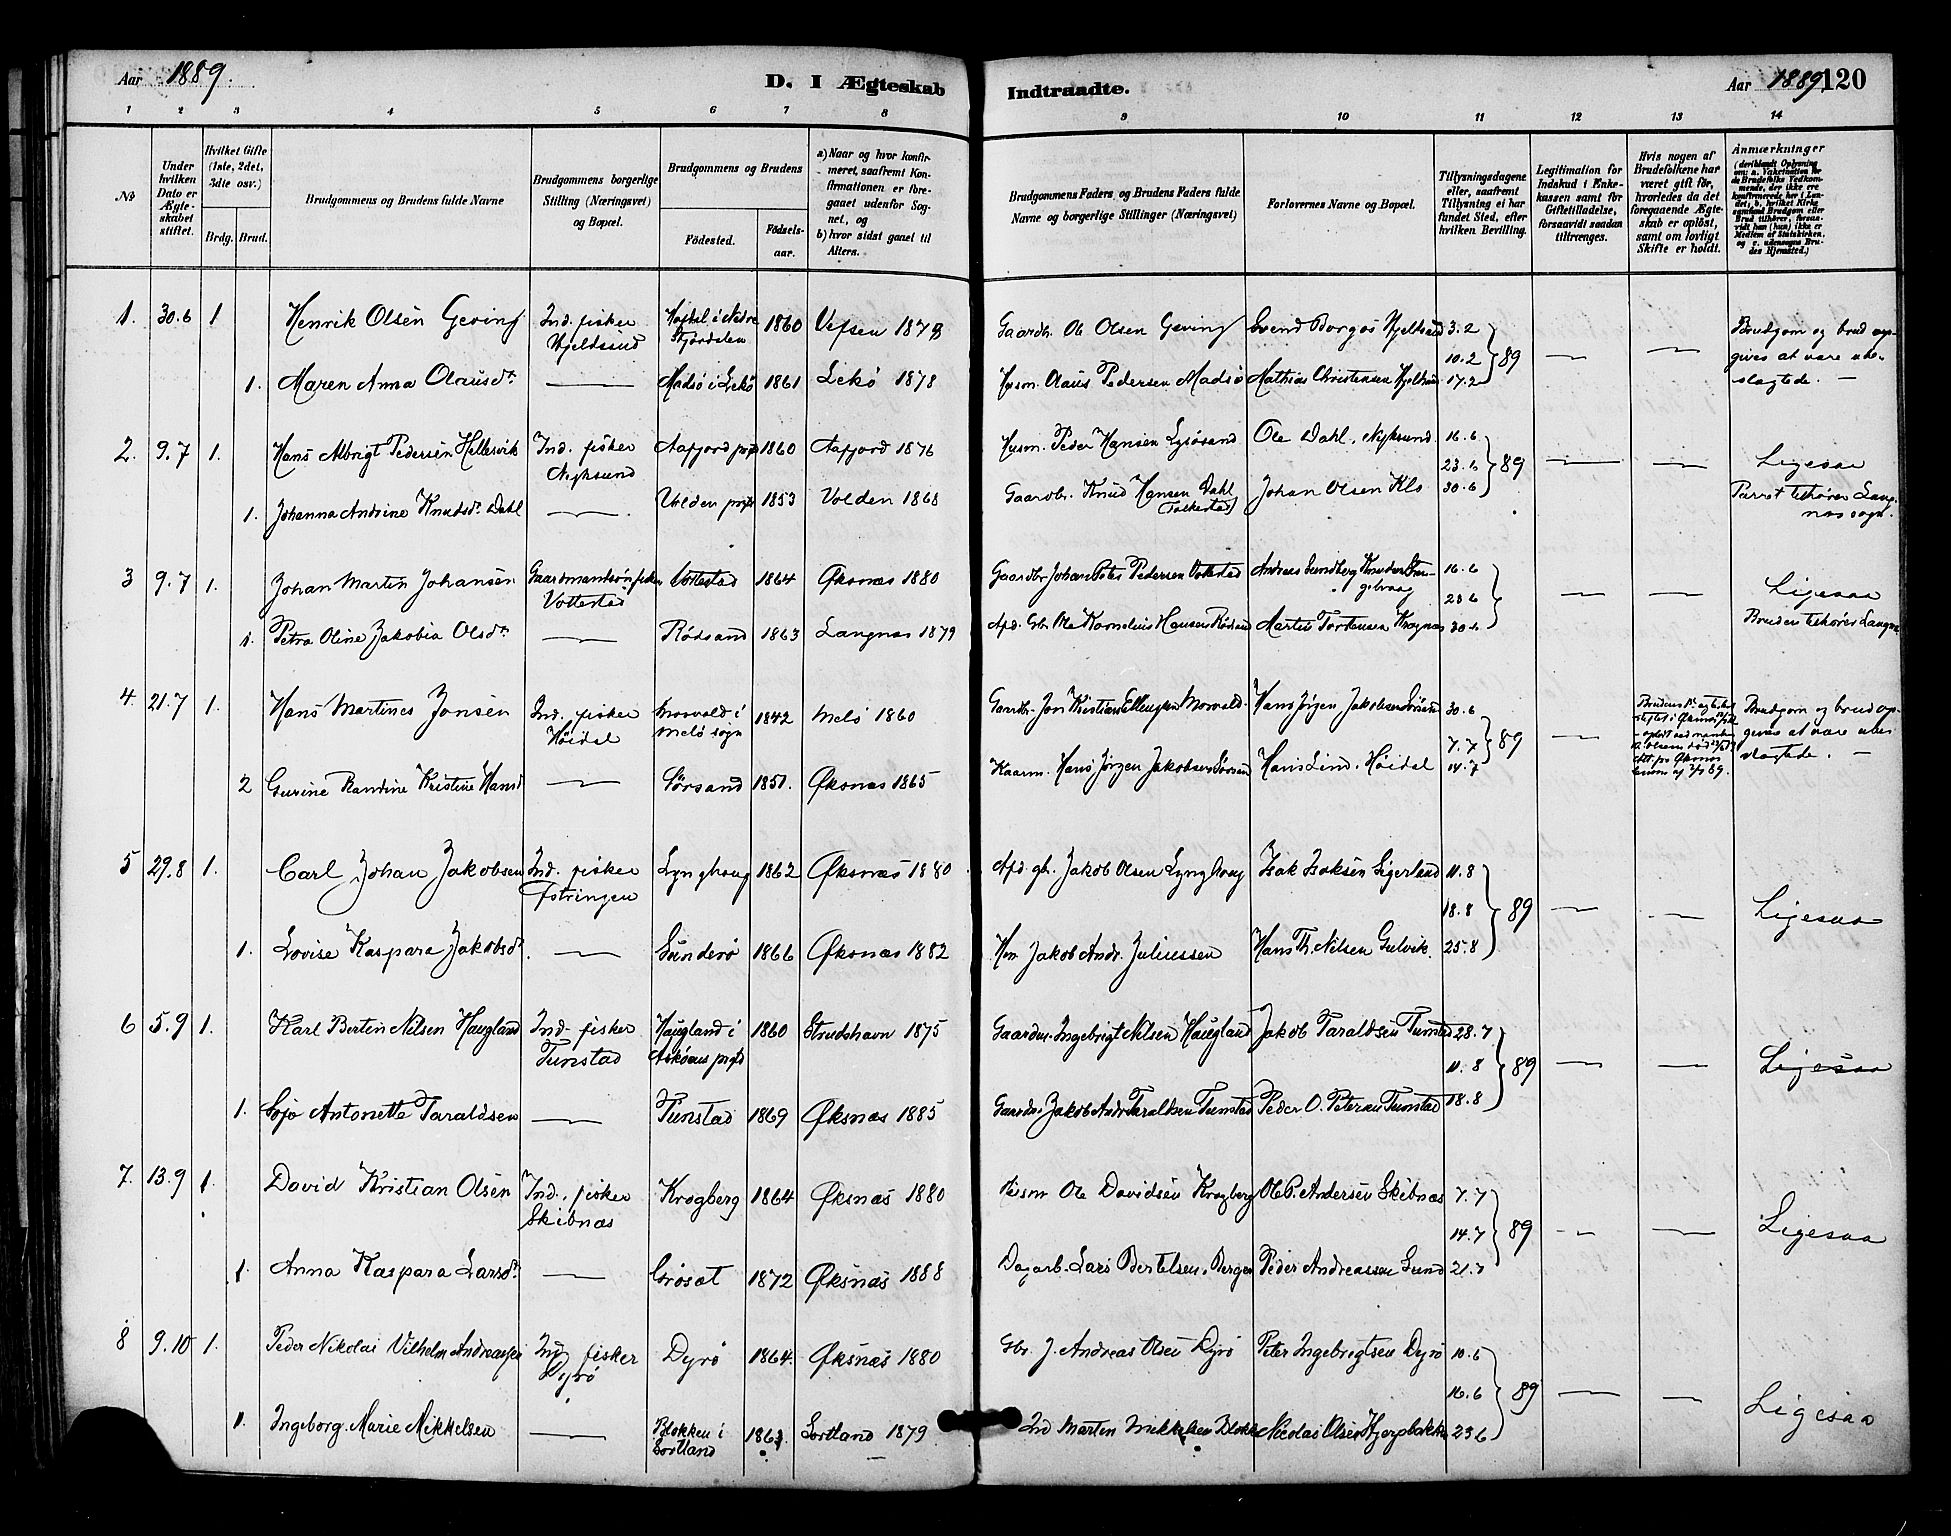 Aar 1889.
D. I Ægteskab
Indtraadte.
Aar 1889. 120
1 2 3 4 5 6 7 8
9 10 11 12 13 14
№
Under hvilken Dato er Ægteskabet stiftet.
Hvilket Gifte (1ste, 2det, 3die osv.)
Brdg. Brud.
Brudgommens og Brudens fulde Navne
Brudgommens borgerlige Stilling (Næringsvei) og Bopæl.
Brudgommens og Brudens
Födested.
Födselsaar.
a) Naar og hvor konfirmeret, saafremt Konfirmationen er foregaaet udenfor Sognet, og
b) hvor sidst gaaet til Alters.
Brudgommens Faders og Brudens Faders fulde Navne og borgerlige Stillinger (Næringsvei)
Forlovernes Navne og Bopæl.
Tillysningsdagene eller, saafremt Tillysning ei har fundet Sted, efter hvilken Bevilling.
Legitimation for Indskud i Enkekassen samt for Giftetilladelse, forsaavidt saadan tiltrænges.
Hvis nogen af Brudefolkene har været gift för, hvorledes da det foregaaende Ægteskab er oplöst, samt om lovligt Skifte er holdt.
Anmærkninger
1. 30.6 1 Henrik Olsen Geving Ind. fisker Hjeldsund 1860 Vefsen 1878 Gaardbr. Ole Olsen Geving Svend Borgos Hjeldsund 3.2
10.2 } 89 — — Brudgom og brud opgives at være ubeslægtede. —
1. Maren Anna Olausdr. — Madsö i Lekö 1861 Lekö 1878 Husm. Olaus Pedersen Madsö Mathias Christensen 17.2
2. 9.7 1. Hans Albrigt Pedersen Hellesvik Ind. fisker Nyksund Aafjord prgd 1860 Aafjord 1876 Husm. Peder Hansen Lysösund Ole Dahl, Nyksund. 16.6
23.6 } 89 — — Ligesaa
1. Johanna Andrine Knudsdr. Dahl — Volden prgd 1853 Volden 1868 Gaardbr. Knud Hansen Dahl Folkestad) Johan Olsen Klo 30.6 Parret tilhörer Langnes sogn.
3 9.7 1. Johan Martin Johansen Gaardmandsön, fisker Vottestad Vottestad 1864 Öksnæs 1880 Gaardbr. Johan Pedersen Vottestad Andreas 16.6
23.6 } — — Ligesaa
1. Petra Oline Jakobia Olsdr. — Rödsand 1863 Langnæs 1879 Afd. Gbr. Ole Kornelius Hansen Rödsand Martin Torstensen 30.6 Bruden tilhörer Langnæs
4. 21.7 1. Hans Martines Jonsen Ind. fisker Höidal Mosvold i Melö sogn 1842 Melö 1860 Gaardbr. Jon Kristian Ellingsen Mosvold Hans Jörgen Jakobsen Sörsan 30.6
7.7 } 89 — Brudgom og brud opgives at være ubeslægtede. —
2 Gurine Randine Kristine Hansd — Sörsand 1851. Öksnæs 1865 Kaarm. Hans Jörgen Jakobsen Sörsan Hans Lind, Höidal 14.7
5 29.8 1. Carl Johan Jakobsen Ind. fisker Fstringen Lynghaug 1862 Öksnæs 1880 Afd. gbr. Jakob Olsen Lynghaug Isak Isaksen Sigerland 11.8
18.8 } 89 — — Ligesaa
1. Lovise Kaspara Jakobsdr. — Sunderö 1866 Öksnæs 1882 Hm. Jakob Andr. Juliussen Hans Th. Nilsen Gulvik. 25.8
6 5.9 1. Karl Bertin Nilsen Haugland Ind. fisker Tunstad Haugland i Asköens prgd 1860 Strudshavn 1875 Gaardm. Ingebrigt Nilsen Haugland Jakob Taraldsen Tunstad 28.7
11.8 } 89 — — Ligesaa
1. Sofo Antonette Taraldsen — Tunstad 1869 Öksnæs 1885 Gaardm. Jakob Andr. Taraldsen Tunstad Peder O. Petersen Tunstad 18.8
7. 13.9 1. David Kristian Olsen Ind. fisker Skibnæs Krogberg 1864 Öksnæs 1880 Husm Ole Davidsen Krogberg Ole P. Andersen Skibnæs 7.7
14.7 } 89 — — Ligesaa
1. Anna Kaspara Larsdr. — Grösæt 1872 Öksnæs 1888 Dagarb. Lars Bertelsen, Bergen Peder Andreassen Sund 21.7
8 9.10 1. Peder Nikolai Vilhelm Andreassen Ind. fisker Dyrö Dyrö 1864. Öksnæs 1880 Gbr. J. Andreas Olsen Dyrö Peter Ingebrigtsen Dyrö 10.6
16.6 } 89 — — Ligesaa
1. Ingeborg Marie Mikkelsen — Blokken i Sortland 1863. Sortland 1879 Ind Martin Mikkelsen Blokken Nicolai Olsen Hjerpbakken 23.6